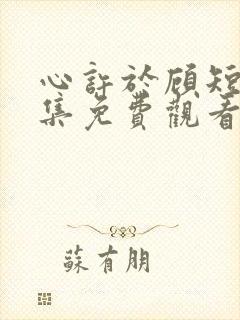 心許於顧短
集免費觀看
蘇有朋